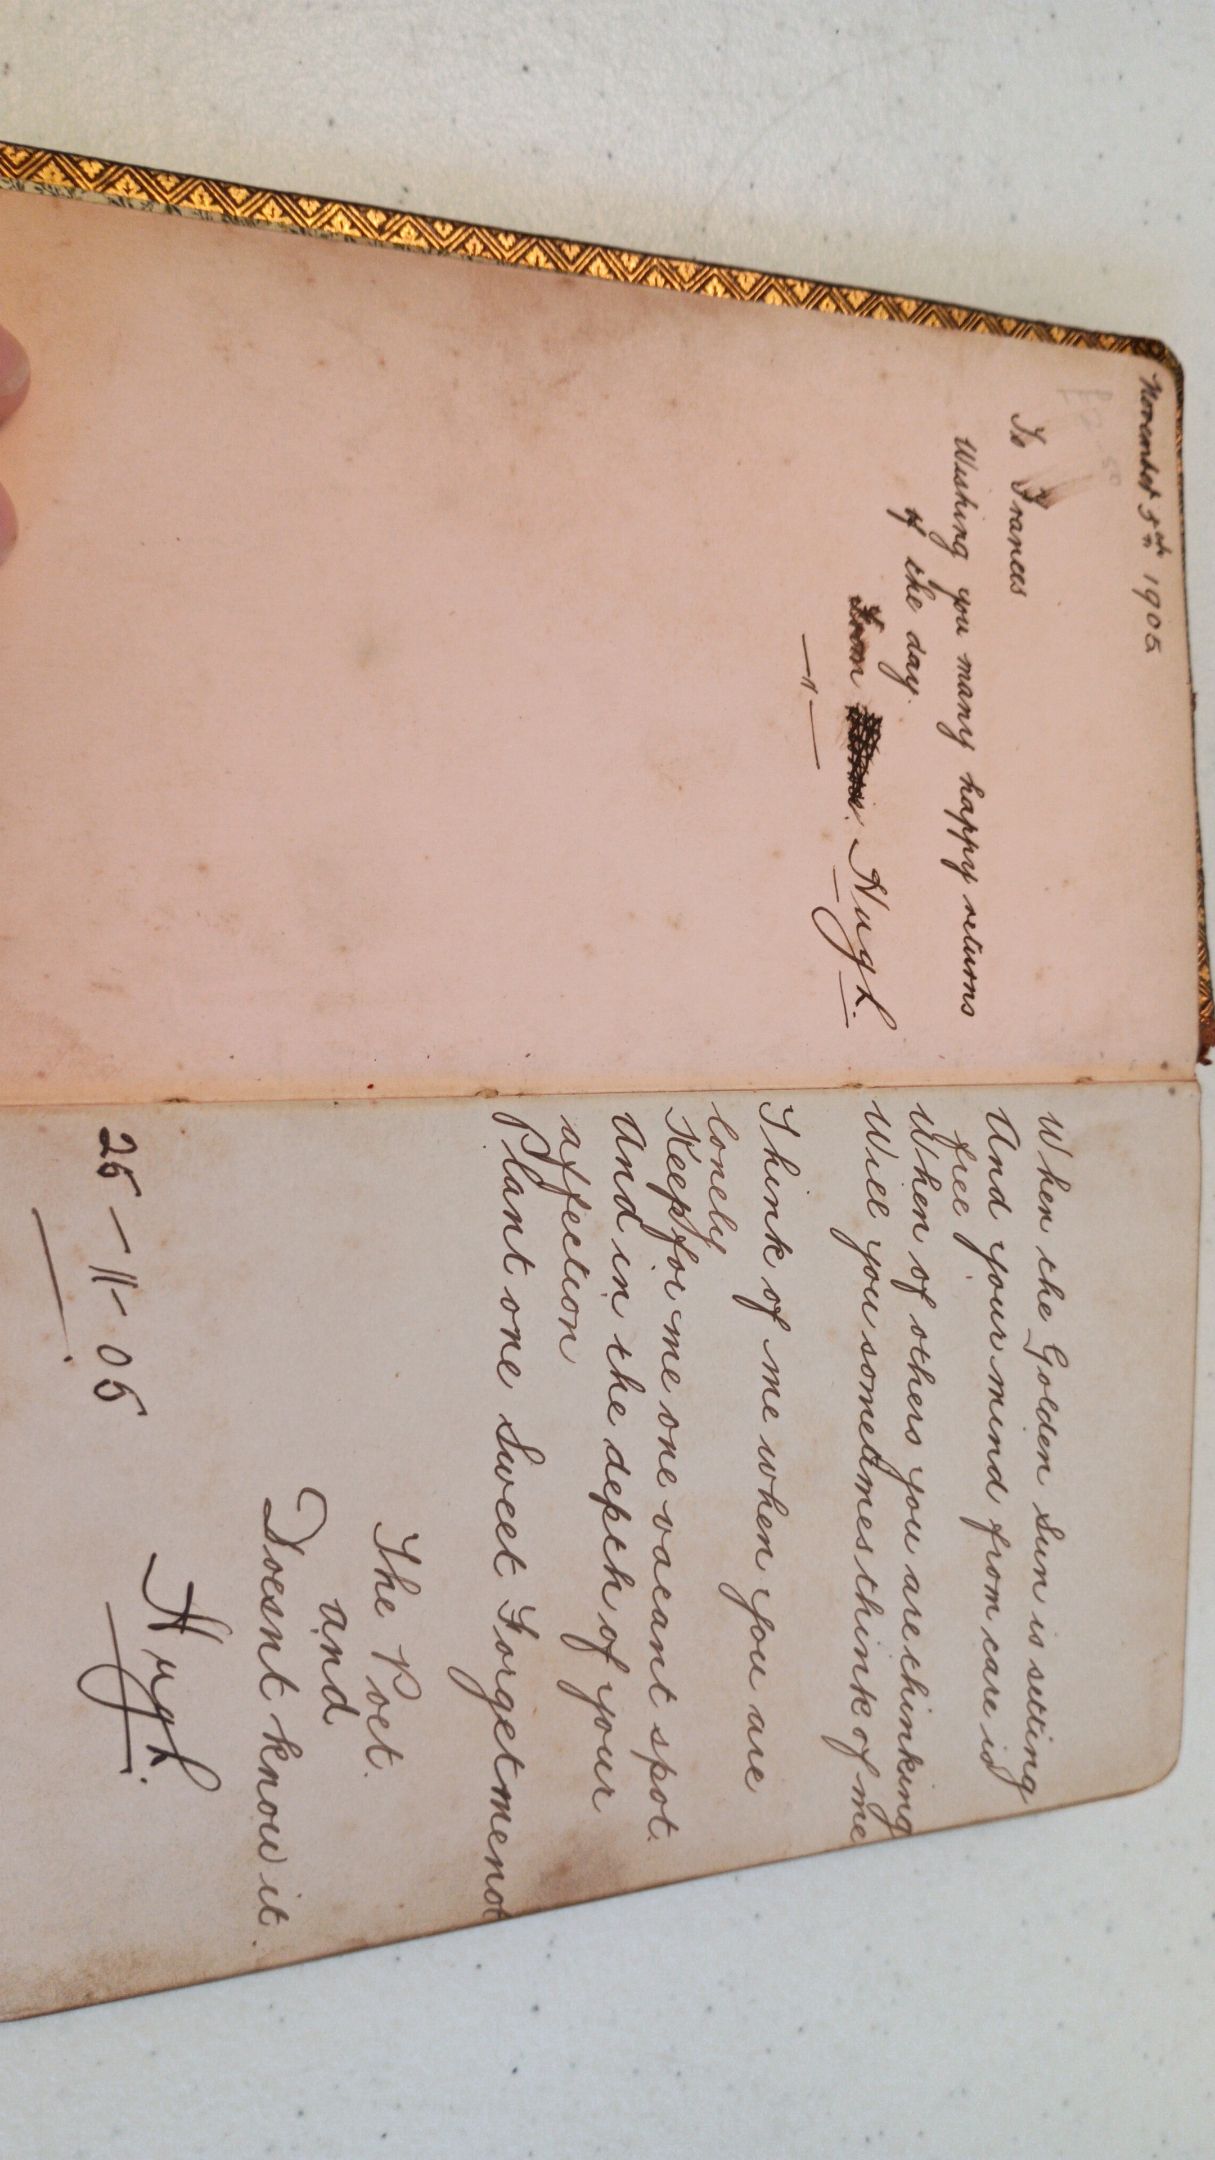 November 5th 1905
To Frances
Wishing you many happy returns
of the day.
From Hugh.
When the Golden Sun is setting
And your mind from care is
free
When of others you are thinking
Will you sometimes think of me
Think of me when you are
lonely
Keep for me one vacant spot.
And in the depth of your
affection
Plant one Sweet Forgetmenot
The Poet.
and
Doesnt know it.
25-11-05
Hugh.